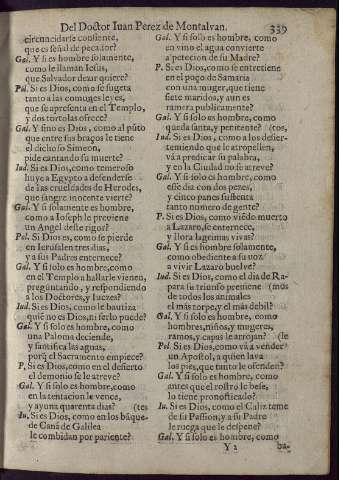 Del Doctor Iuan Perez de Montalvan.
339
circuncidarse consiente,
que es señal de pecador?
Gal. Y si es hombre solamente,
como le llaman Iesus,
que Salvador dezir quiere?
Pol. Si es Dios, como se sugeta
tanto a las comunes leyes,
que se apresenta en el Templo,
y dos tortolas ofrece?
Gal. Y sino es Dios, como al pũto
que entre sus braços le tiene
el dichoso Simeon,
pide cantando su muerte?
Iud. Si es Dios, como temeroso
huye a Egypto a defenderse
de las crueldades de Herodes,
que sangre inocente vierte?
Gal. Y si solamente es hombre,
como a Ioseph le previene
un Angel deste rigor?
Pol. Si es Dios, como se pierde
en Ierusalen tres dias,
y a sus Padres enternece?
Gal. Y si solo es hombre, como
en el Templo a hallarle vienen,
preguntando, y respondiendo
a los Doctores, y Iuezes?
Iud. Si es Dios, como le bautiza
quiẽ no es Dios, ni serlo puede?
Gal. Y si solo es hombre, como
una Paloma deciende,
y santifica las aguas,
porq̃ el Sacramento empiece?
P. Si es Dios, como en el desierto
el demonio se le atreve?
Gal. Y si solo es hombre, como
en la tentacion le vence,
y ayuna quarenta dias? (tes
Iu. Si es Dios, como en los bãque-
de Canà de Galilea
le combidan por pariente?
Gal. Y si solo es hombre, como
en vino el agua convierte
a peticion de su Madre?
P. Si es Dios, como se entretiene
en el poço de Samaria
con una muger, que tiene
siete maridos, y aun es
ramera publicamente?
Gal. Y si solo es hombre, como
queda santa, y penitente? (tos,
Iud. Si es Dios, como a los desier-
temiendo que le atropellen,
và a predicar su palabra,
y en la Ciudad no se atreve?
Gal. Y si solo es hombre, como
esse dia con dos pezes,
y cinco panes sustenta
tanto numero de gente?
P. Si es Dios, como viẽdo muerto
a Lazaro, se enternece,
y llora lagrimas vivas?
Gal. Y si es hombre solamente,
como obediente a su voz
a vivir Lazaro buelve?
Iud. Si es Dios, como el dia de Ra-
para su triunfo previene (mos
de todos los animales
el mas torpe, y el mas debil?
Gal. Y si solo es hombre, como
hombres, niños, y mugeres,
ramos, y capas le arrojan? (le
Pol. Si es Dios, como và a vender
un Apostol, a quien lava
los pies, que tanto le ofenden?
Gal. Y si solo es hombre, como
antes que el rostro le bese,
lo tiene pronosticado?
Iu. Si es Dios, como el Caliz teme
de su Passion, y a su Padre
le ruega que le despene?
Gal. Y si solo es hombre, como
Y 2